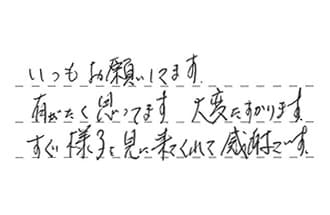 いつもお願いしてます。
有がたく思ってます 大変たすかります。
すぐ様子を見に来てくれて感謝です。